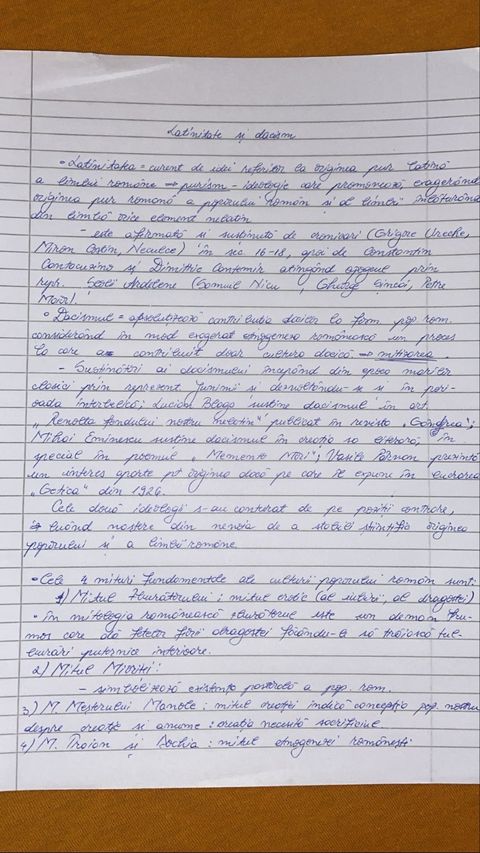 Latinitate și dacism
• Latinitatea = curent de idei referitor la originea pur latină
a limbii române → purism - ideologie care promovează, exagerând
originea pur romană a poporului român și al limbii înlăturând
din limbă orice element nelatin
- este afirmată și susținută de cronicari (Grigore Ureche,
Miron Costin, Neculce) în sec 16-18, apoi de Constantin
Cantacuzino și Dimitrie Cantemir atingând apogeul prin
repr. Școlii Ardelene (Samuil Micu, Ghe Șincai, Petru
Maior).
• Dacismul = absolutizează contribuția dacilor la form pop rom.
considerând în mod exagerat etnogeneza românească un proces
la care a contribuit doar cultura dacică → mitizarea.
- Susținători ai dacismului începând din epoca marilor
clasici prin reprezent Junimii și dezvoltându-se și în peri-
oada interbelică; Lucian Blaga susține dacismul în art.
„Revolta fondului nostru nelatin” publicat în revista „Gândirea”;
Mihai Eminescu susține dacismul în creația sa literară, în
special în poemul „Memento Mori”; Vasile Pârvan prezintă
un interes aparte pt originea dacă pe care îl expune în lucrarea
„Getica” din 1926.
Cele două ideologii s-au conturat de pe poziții contrare,
luând naștere din nevoia de a stabili științific originea
poporului și a limbii române.
• Cele 4 mituri fundamentale ale culturii poporului român sunt:
1) Mitul Zburătorului: mitul erotic (al iubirii, al dragostei)
• în mitologia românească zburătorul este un demon fru-
mos care dă fetelor fiorii dragostei făcându-le să trăiască tul-
burări puternice interioare.
2) Mitul Mioriței:
- simbolizează existența pastorală a pop. rom.
3) M. Meșterului Manole: mitul creației indică concepția pop. nostru
despre creație și anume: creația necesită sacrificiul
4) M. Traian și Dochia: mitul etnogenezei românești